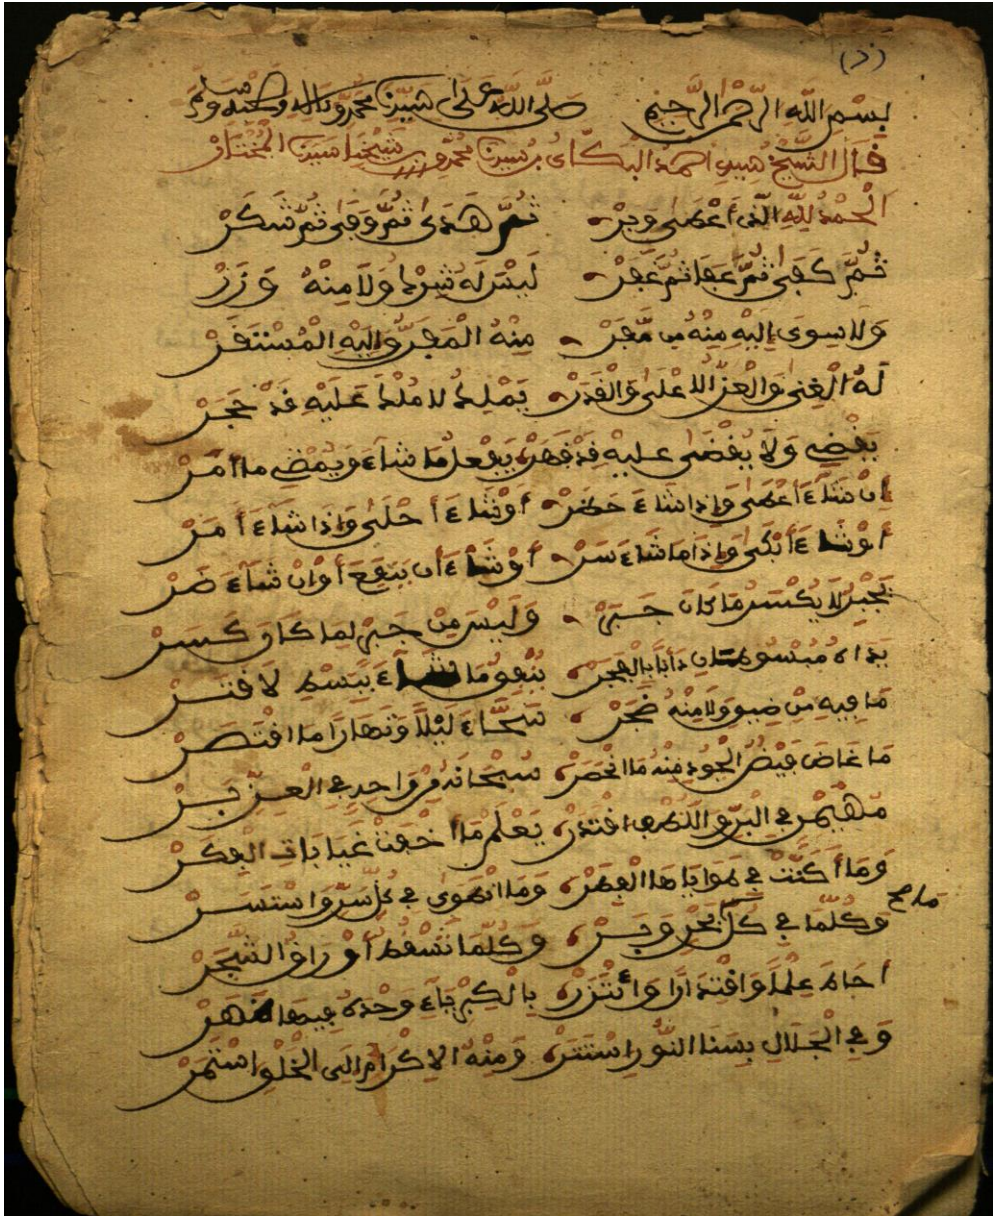 (د)
بسم الله الرحمن الرحيم صلى الله على سيدنا محمد وآله وصحبه وسلم
قال الشيخ سيد احمد البكاي بن سيدنا محمد بن شيخنا سيدنا المختار
الحمد لله الذي أعطى وبر ثم هدى ثم وقى ثم شكر
ثم كفى ثم عفا ثم غفر ليس له شرك ولا منه وزر
ولا سوى إليه منه من مفر منه المفر وإليه المستقر
له الغنى والعز الاعلى والقدر يملك لا ملك عليه قد حجر
يقضي ولا يقضى عليه قد قهر يفعل ما شاء ويمضي ما أمر
إن شاء أعطى وإذا شاء حظر أو شاء أحلى وإذا شاء أمر
أو شاء أبكى وإذا ما شاء سر أو شاء أن ينفع أو إن شاء ضر
يجبر لا يكسر ما كان جبر وليس من جبر لما كان كسر
يداه مبسوطتان دأبا بالهجر ينفق ما شاء يبسط لا قتر
ما فيه من ضيق ولا منه ضجر سحاء ليلا ونهارا ما اقتصر
ما غاض فيض الجود منه ما انحصر سبحانه من واحد في العز بر
مهيمن في البر واللطف اقتدر يعلم ما أخفت غيابات الفكر
وما أكنت في طواياها الفطر وما انطوى في كل سر واستسر
وكلما في كل بحر وبر وكلما تسقط أوراق الشجر
ما مح
أحاط علما واقتدارا وأتزر بالكبرياء وحده فيها ظهر
وفي الجلال بسنا النور استتر ومنه الاكرام إلى الخلق استمر